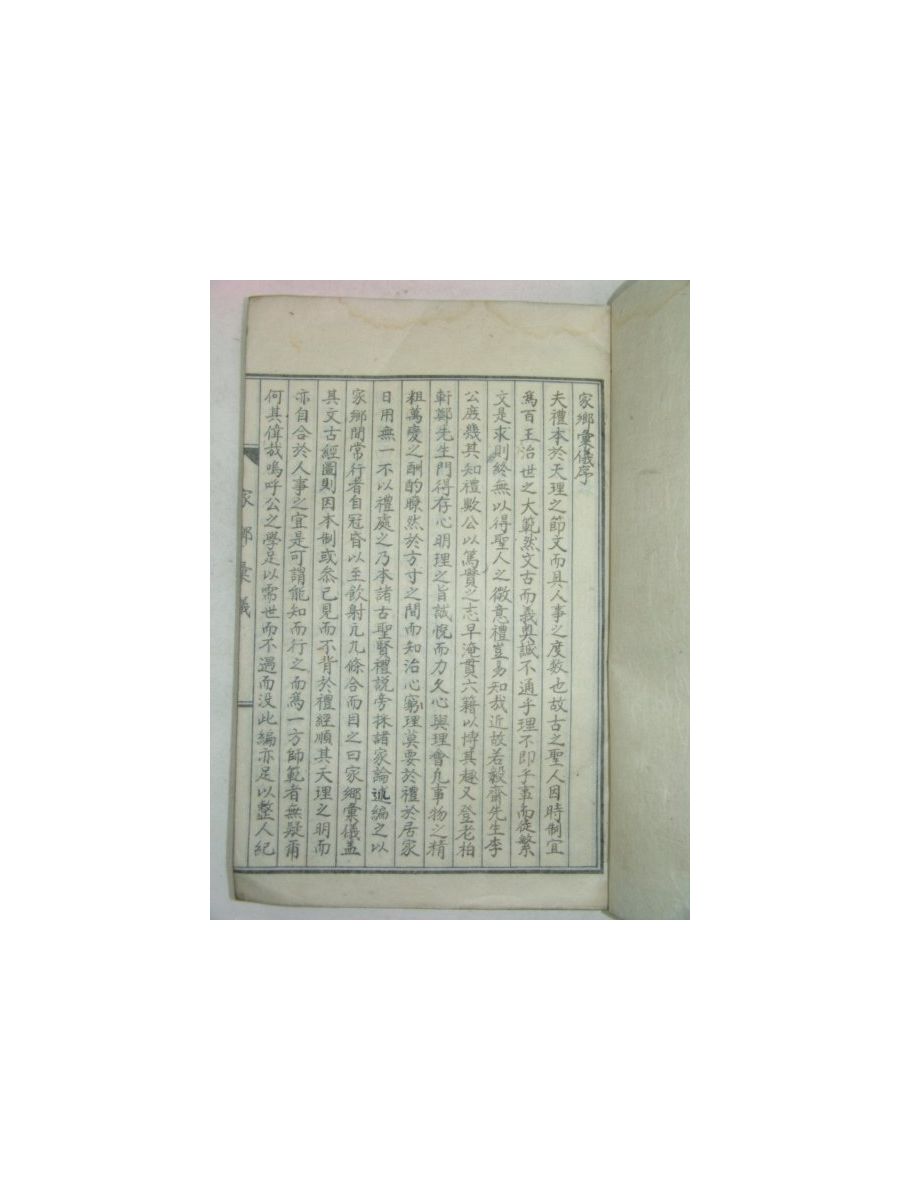 家鄉彙儀序
夫禮本於天理之節文而具人事之度数也故古之聖人因時制宜
爲百王治世之大範然文古而義奥誠不通乎理不即乎事而徒繁
文是求則終無以得聖人之微意禮豈易知哉近故若毅齋先生李
公庶幾其知禮數公以篤贒之志早淹貫六籍以博其趣又登老柏
軒鄭先生門得存心明理之旨誠悅而力久心與理會凢事物之精
粗萬變之酬酌瞭然於方寸之間而知治心窮理莫要於禮於居家
日用無一不以禮處之乃本諸古聖賢禮說旁採諸家論述編之以
家鄉間常行者自冠昏以至飮射凢九條合而目之曰家鄉彙儀盖
其文古經圖則因本制或叅己見而不背於禮經順其天理之明而
亦自合於人事之宜是可謂能知而行之而爲一方師範者無疑甭
何其偉哉嗚呼公之學足以需世而不遇而没此編亦足以整人紀
家鄉彙儀